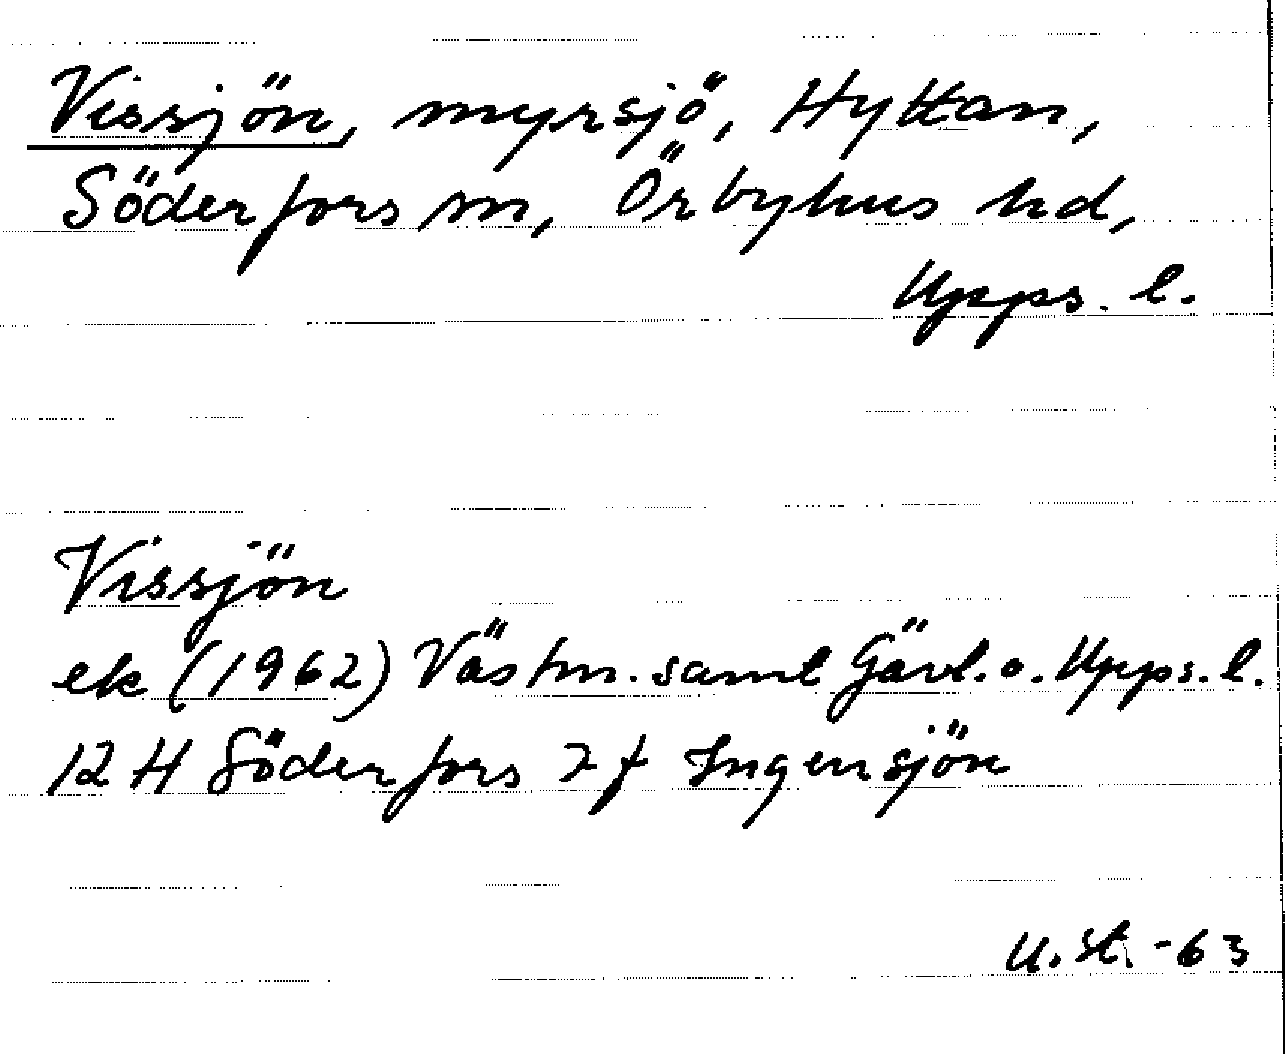 Vissjön, myrsjö, Hyttan,
Söderfors sn, Örbyhus hd,
Upps. l.
Vissjön
ek (1962) Västm. samt Gävl. o. Upps. l.
12 H Söderfors 7 f Ingensjön
U. St. -63